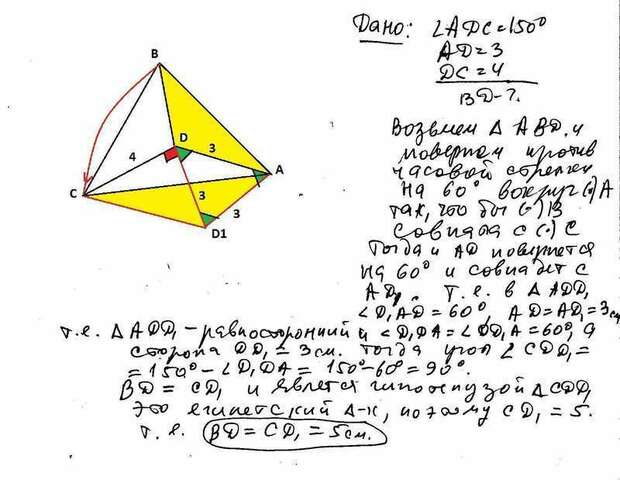 Дано: ∠ADC=150°
AD=3
DC=4
BD-?
B
D
3
4
A
C
3
3
D1
Возьмем ∆ ABD и
повернем против
часовой стрелки
на 60° вокруг (·)A
так, что бы (·)B
совпала с (·) C
Тогда и AD повернется
на 60° и совпадет с
AD₁. Т.е. в ∆ADD₁
∠D₁AD=60°, AD=AD₁=3см
т.е. ∆ADD₁-равносторонний и ∠D₁DA=∠DD₁A=60°, а
сторона DD₁=3см. Тогда угол ∠CDD₁=
=150°-∠D₁DA=150°-60°=90°.
BD=CD₁ и явлется гипотенузой ∆CDD₁
Это египетский ∆-к, поэтому CD₁=5.
т.е. BD=CD₁=5см.